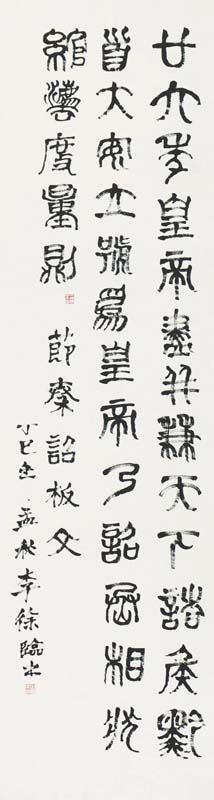 廿六年皇帝盡并兼天下諸侯黔
首大安立號爲皇帝乃詔丞相狀
綰灋度量則 節秦詔板文
孟秋李徐臨